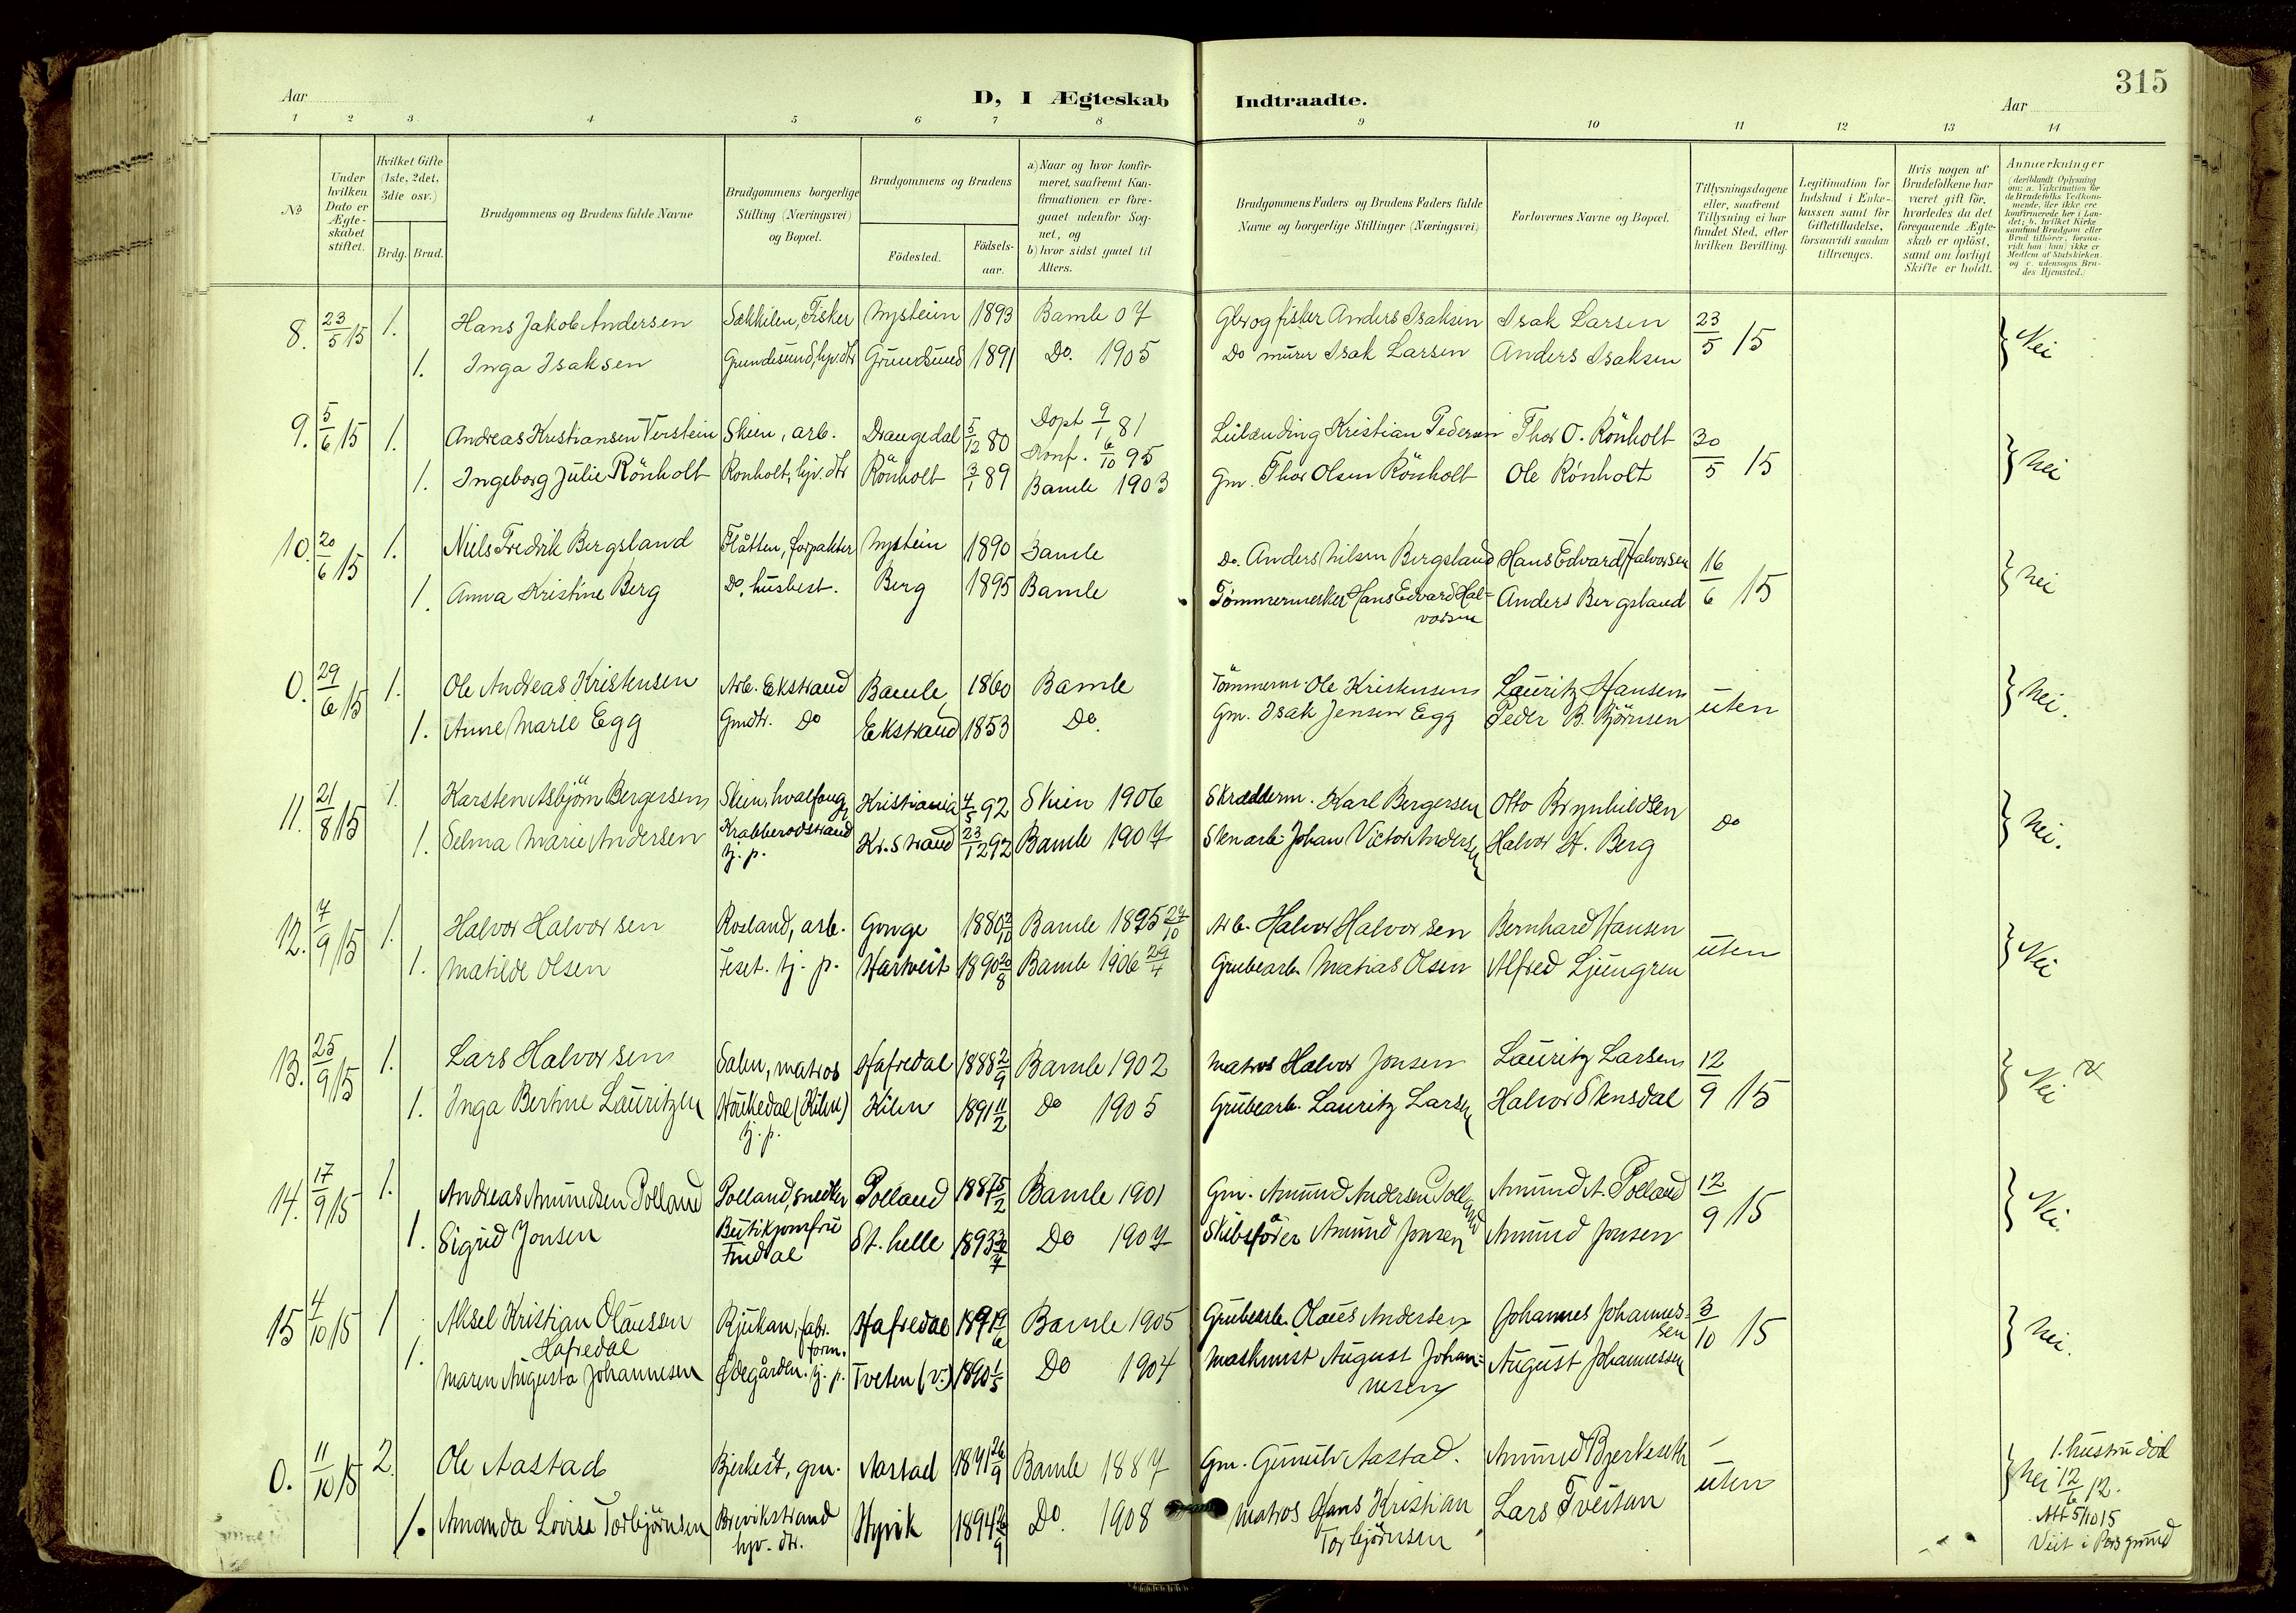 315
Aar
D, I Ægteskab Indtraadte.
Aar
1 2 3 4 5 6 7 8 9 10 11 12 13 14
No
Under hvilken Dato er Ægteskabet stiftet.
Hvilket Gifte (1ste, 2det, 3die osv.)
Brdg. Brud.
Brudgommens og Brudens fulde Navne
Brudgommens borgerlige Stilling (Næringsvei) og Bopæl.
Brudgommens og Brudens
Fødested.
Fødselsaar.
a) Naar og hvor konfirmeret, saafremt Konfirmationen er foregaaet udenfor Sognet, og
b) hvor sidst gaaet til Alters.
Brudgommens Faders og Brudens Faders fulde Navne og borgerlige Stillinger (Næringsvei)
Forlovernes Navne og Bopæl.
Tillysningsdagene eller, saafremt Tillysning ei har fundet Sted, efter hvilken Bevilling.
Legitimation for Indskud i Enkekassen samt for Giftetilladelse, forsaavidt saadan tiltrænges.
Hvis nogen af Brudefolkene har været gift før, hvorledes da det foregaaende Ægteskab er opløst, samt om lovligt Skifte er holdt.
Anmerkninger (deriblandt Oplysning om: a. Vakcination for de Brudefolks Vedkommende, der ikke ere konfirmerede her i Landet; b. hvilket Kirkesamfund Brudgom eller Brud tilhører, forsaavidt han (hun) ikke er Medlem af Statskirken, og c. udensogns Brudes Hjemsted.)
8. 23/5 15 1. Hans Jakob Andersen Fisker Nystein 1893 Bamle 07 Gbr og fisker Anders Isaksen Isak Larsen 23/5 15 Nei
1. Inga Isaksen Grundesund, hjv. dtr Grundsund 1891 Do. 1905 Do murer Isak Larsen Anders Isaksen
9. 5/6 15 1. Andreas Kristiansen Verstein Skien, arb. Drangedal 5/12 80 Døpt 9/1 81 Konf. 6/10 95 Kristian Pedersen Thor O. Rönholt 30/5 15 nei
1. Ingeborg Julie Rönholt Ronholt, hjv. dtr Rönholt 3/1 89 Bamle 1903 Gm. Thor Olsen Rönholt Ole Rönholt
10. 20/6 15 1. Niels Fredrik Bergsland Flåtten, forpakter Nystein 1890 Bamle Do. Anders Nilsen Bergsland Hans Edvard Halvorsen 16/6 15 nei
1. Anna Kristine Berg Do, husbest. Berg 1895 Bamle Tømmermester Hans Edvard Hal-
vorsen Anders Bergsland
0. 29/6 15 1. Ole Andreas Kristensen Arb. Ekstrand Bamle 1860 Bamle Tömmerm. Ole Kristensen Lauritz Hansen uten nei.
1. Anne Marie Egg Gmdtr. Do Ekstrand 1853 Do. Gm. Isak Jensen Egg Peder B. Bjørnsen
11. 21/8 15 1. Karsten Asbjörn Bergersen Skien, hvalfang. Kristiania 4/5 92 Skien 1906 Skrædderm. Karl Bergersen Otto Brynhildsen Do nei.
1. Selma Marie Andersen Krabberødstrand tj. p. Kr. Strand 23/12 92 Bamle 1907 Stenarb. Johan Victor Andersen Halvor H. Berg
12. 7/9 15 1. Halvor Halvorsen Rosland, arb. Gonge 1880 Bamle 1895 Arb. Halvor Halvorsen Bernhard Hansen uten Nei
1. Matilde Olsen Feset. tj. p. Hartveit 1890 20/8 Bamle 1906 29/4 Grubearb. Matias Olsen Alfred Ljungren
13. 25/9 15 1. Lars Halvorsen Salen, matros Hafredal 1888 2/9 Bamle 1902 Matros Halvor Jonsen Lauritz Larsen 12/9 15 Nei
1. Inga Bertine Lauritzen Haukedal (Kilen) tj. p. Kilen 1891 11/2 Do 1905 Grubearb. Lauritz Larsen Halvor Stensdal
14. 17/9 15 1. Andreas Amundsen Polland Polland, snedker Polland 1887 5/2 Bamle 1901 Gm. Amund Andersen Polland Amund A. Polland 12/9 15 Nei.
1. Sigrid Jonsen Butikjomfru Findal St. helle 1893 Do 1907 Skibsfører Amund Jonsen Amund Jonsen
15 4/10 15 1 Aksel Kristian Olaussen
Hafredal Rjukan, fabr. form. Hafredal 1891 Bamle 1905 Grubearb. Olaus Andersen Johannes Johannes-
sen 3/10 15 nei.
1. Maren Augusta Johannesen Ødegården. tj. p. Tveten (v.) 1890 1/5 Do 1904 Maskinist August Johan-
nesen August Johannessen
0. 11/10 15 2. Ole Aastad Bjerkset, gm. Aastad 1871 26/9 Bamle 1887 Gm. Gunulv Aastad. Amund Bjerkeseth uten nei
1. Amanda Lovise Torbjörnsen Brevikstrand hjv. dtr. Hyvik 1894 Do. 1908 Matros Hans Kristian
Torbjörnsen Lars Tveitan
1. hustru död
12/6 12.
Att 5/10 15
Viet i Porsgrund